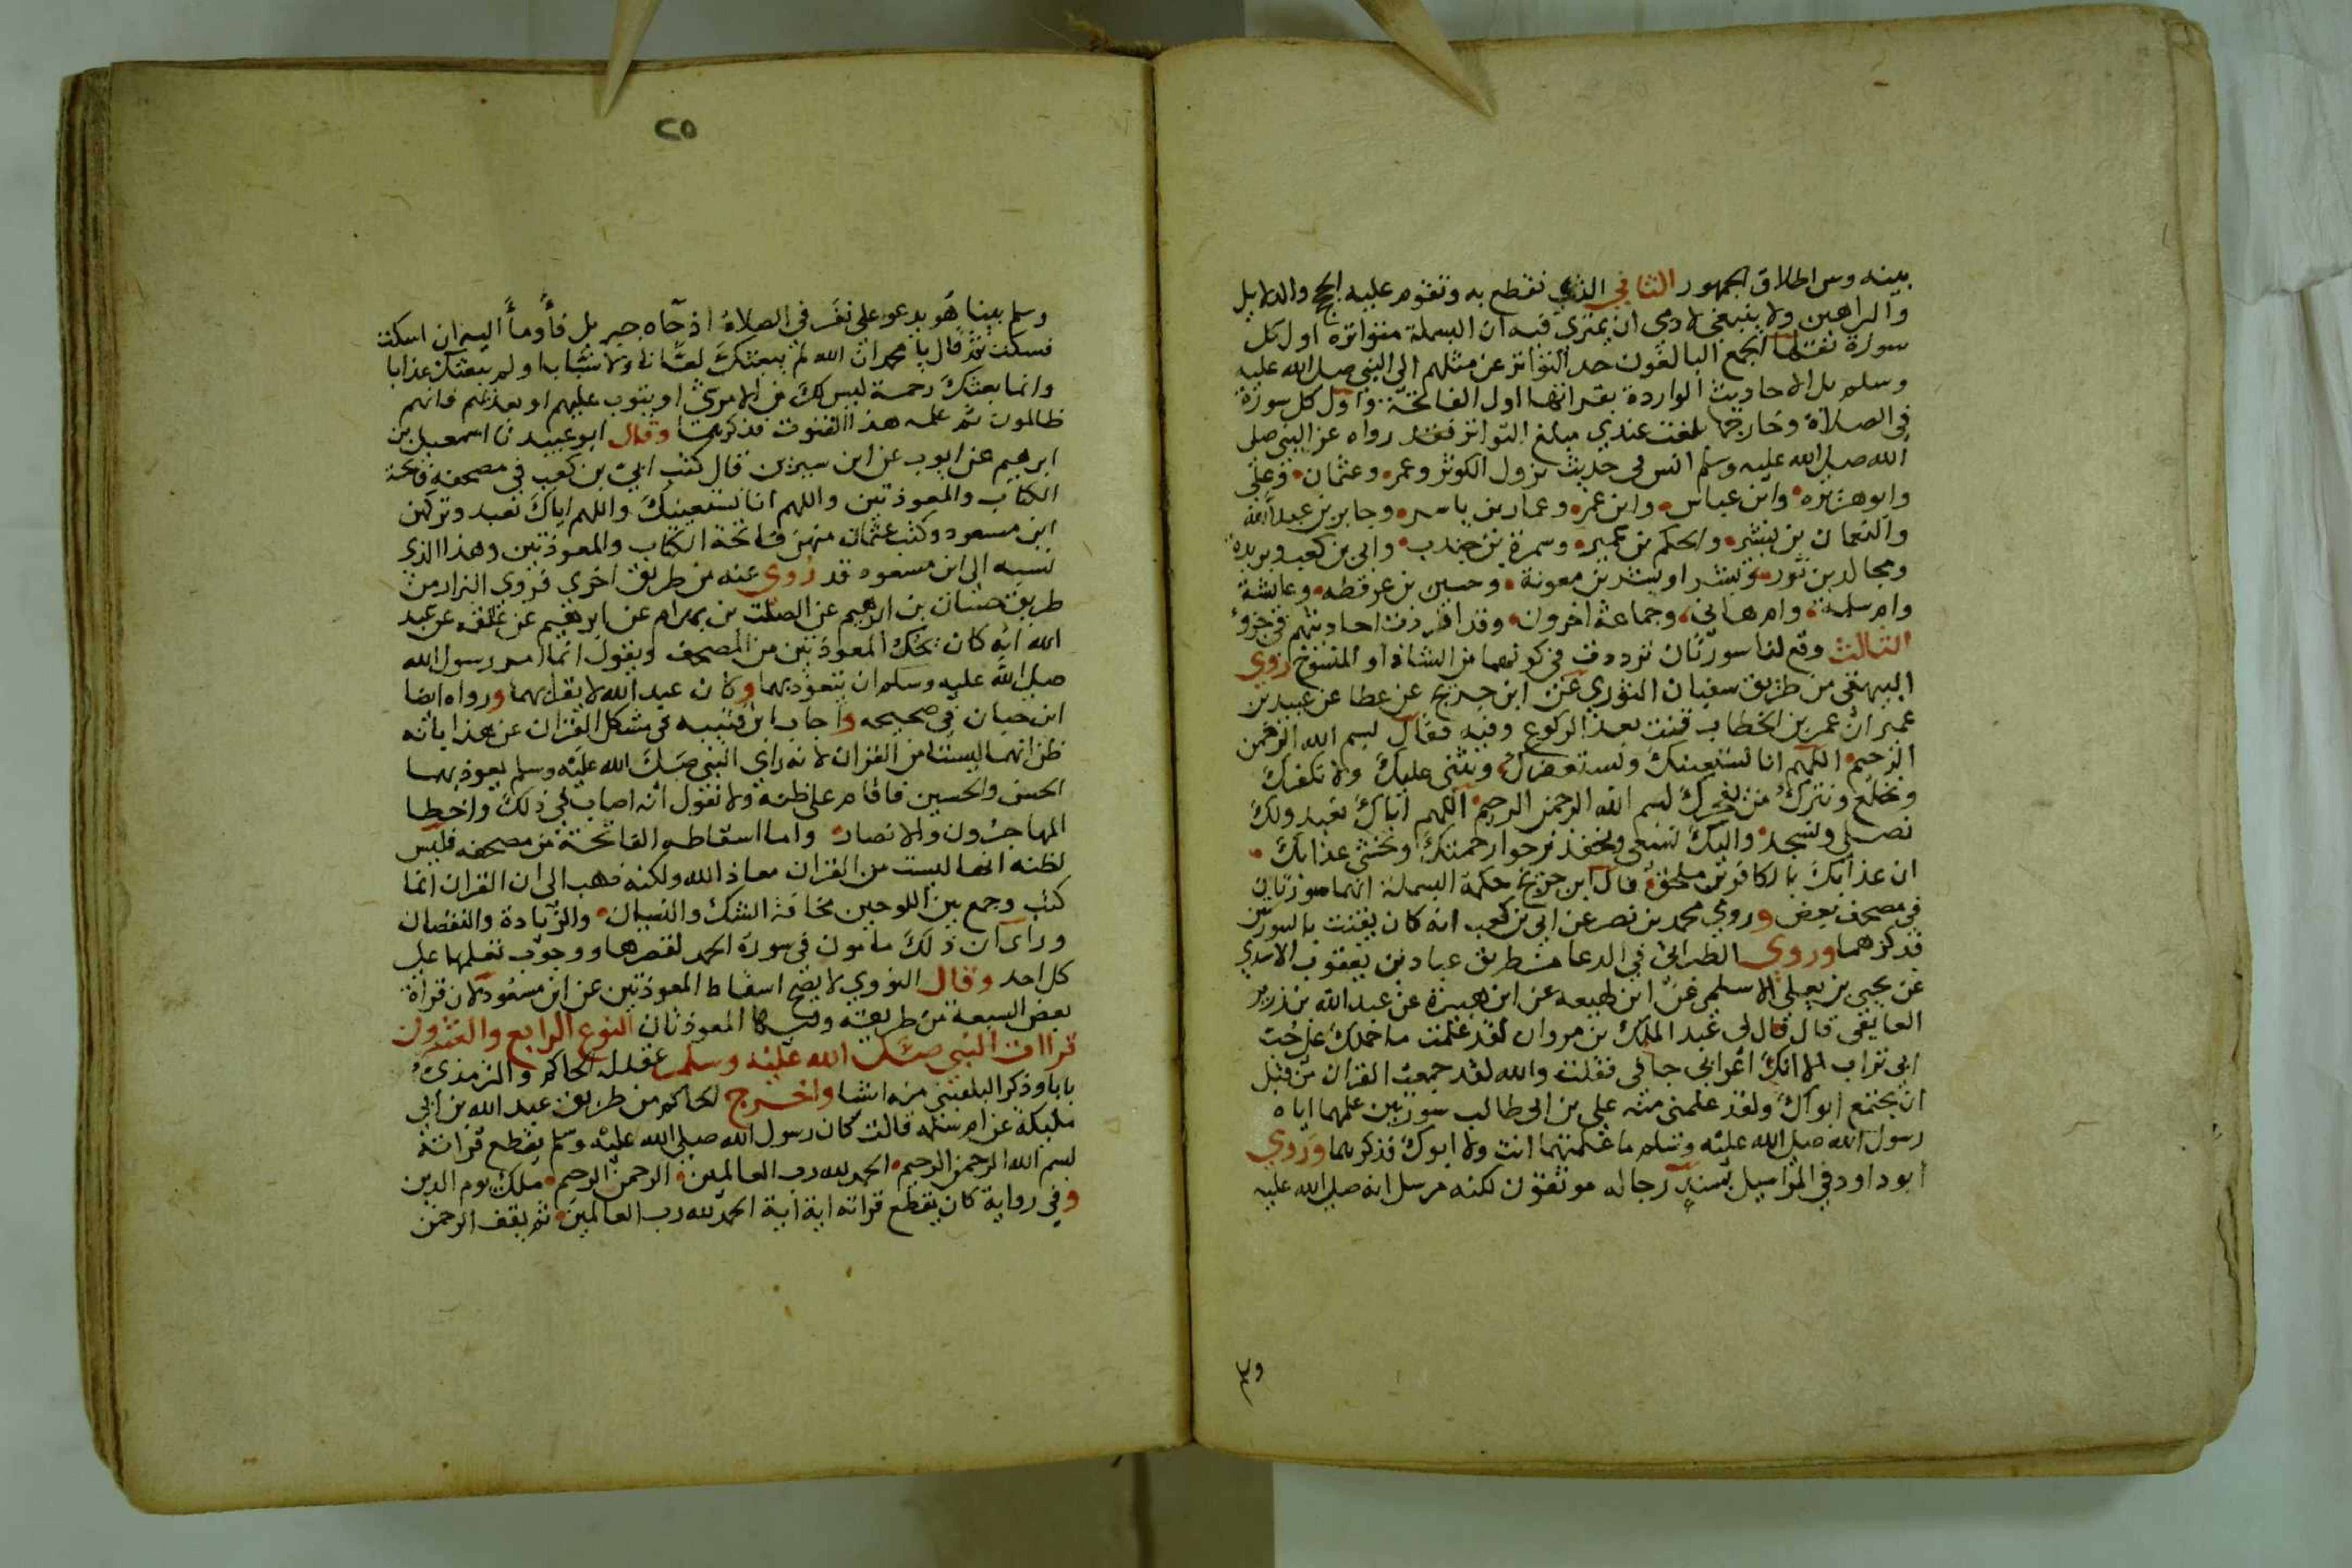 بينه وبين اطلاق الجمهور الثاني الذي نقطع به وتقوم عليه الحجج والدلايل
والبراهين ولا ينبغي لادمي ان يمتري فيه ان البسملة متواترة اول كل
سورة نقلها الجمع البالغون حد التواتر عن مثلهم الى النبي صلى الله عليه
وسلم بل الاحاديث الواردة بقراتها اول الفاتحة واول كل سورة
في الصلاة وخارجها بلغت عندي مبلغ التواتر فقد رواه عن النبي صلى
الله صلى الله عليه وسلم انس في حديث نزول الكوثر وعمر وعثمان وعلى
وابو هريره وابن عباس وابن عمر وعمار بن ياسر وجابر بن عبد الله
والنعمان بن بشير والحكم بن عمير وسمرة بن جندب وابي بن كعب وبريدة
ومجالد بن ثور وبشر او بشر بن معوية وحسين بن عرفطه وعايشة
وام سلمة وام هاني وجماعة اخرون وقد افردت احاديثهم في جزو
الثالث وقع لنا سورتان ترددت في كونهما من الشاذ او المنسوخ روي
البيهقي من طريق سفيان الثوري عن ابن جريج عن عطا عن عبيد بن
عمير ان عمر بن الخطاب قنت بعد الركوع وفيه فقال بسم الله الرحمن
الرحيم اللهم انا نستعينك ونستغفرك ونثني عليك ولا نكفرك
ونخلع ونترك من يفجرك بسم الله الرحمن الرحيم اللهم اياك نعبد ولك
نصلي ونسجد واليك نسعى ونحفد نرجوا رحمتك ونخشى عذابك
ان عذابك بالكافرين ملحق قال ابن جريج حكمة البسملة انهما سورتان
في مصحف بعض وروي محمد بن نصر عن ابي بن كعب انه كان يقنت بالسورتين
فذكرهما وروى الطبراني في الدعا من طريق عباد بن يعقوب الاسدي
عن يحيى بن يعلى الاسلمي عن ابن لهيعه عن ابن هبيرة عن عبد الله بن زرير
الغافقي قال قال لي عبد الملك بن مروان لقد علمت ما حملك على حب
ابي تراب الا انك اعرابي جافي فقلت والله لقد جمعت القران من قبل
ان يجتمع ابواك ولقد علمني منه علي بن ابي طالب سورتين علمهما اياه
رسول الله صلى الله عليه وسلم ما علمتهما انت ولا ابوك فذكرهما وروي
ابو داود في المراسيل بسند رجاله موثقون لكنه مرسل انه صلى الله عليه
٢٥
وسلم بينا هو يدعو على نفر في الصلاة اذ جآه جبريل فأومأ اليه ان اسكت
فسكت ثم قال يا محمد ان الله لم يبعثك لعانا ولا سبابا ولم يبعثك عذابا
وانما بعثك رحمة ليس لك من الامر شي او يتوب عليهم او يعذبهم فانهم
ظالمون ثم علمه هذا القنوت فذكرهما وقال ابو عبيد نا اسمعيل بن
ابرهيم عن ايوب عن ابن سيرين قال كتب ابي بن كعب في مصحفه فاتحة
الكتاب والمعوذتين واللهم انا نستعينك واللهم اياك نعبد وتركهن
ابن مسعود وكتب عثمان منهن فاتحة الكتاب والمعوذتين وهذا الذي
نسبه الى ابن مسعود قد روي عنه من طريق اخرى فروى البزار من
طريق حسان بن ابرهيم عن الصلت بن بهرام عن ابرهيم عن علقمه عن عبد
الله انه كان يحك المعوذتين من المصحف ويقول انما امر رسول الله
صلى الله عليه وسلم ان يتعوذ بهما وكان عبد الله لا يقرا بهما ورواه ايضا
ابن حبان في صحيحه واجاب ابن قتيبه في مشكل القران عن هذا بانه
ظن انهما ليستا من القران لانه راي النبي صلى الله عليه وسلم يعوذ بهما
الحسن والحسين فاقام على ظنه ولا نقول انه اصاب في ذلك واخطا
المهاجرون والانصار واما اسقاطه الفاتحة من مصحفه فليس
لظنه انها ليست من القران معاذ الله ولكنه ذهب الى ان القران انما
كتب وجمع بين اللوحين مخافة الشك والنسيان والزيادة والنقصان
وراى ان ذلك مامون في سورة الحمد لقصرها ووجوب تعلمها على
كل احد وقال النووي لا يصح اسقاط المعوذتين عن ابن مسعود لان قراة
بعض السبعة من طريقته وفيها المعوذتان النوع الرابع والعشرون
قراات النبي صلى الله عليه وسلم عقد له الحاكم والترمذي
بابا وذكر البلقيني منه اشيا واخرج الحاكم من طريق عبد الله بن ابي
مليكة عن ام سلمه قالت كان رسول الله صلى الله عليه وسلم يقطع قراته
بسم الله الرحمن الرحيم الحمد لله رب العالمين الرحمن الرحيم ملك يوم الدين
وفي رواية كان يقطع قراته اية اية الحمد لله رب العالمين ثم يقف الرحمن